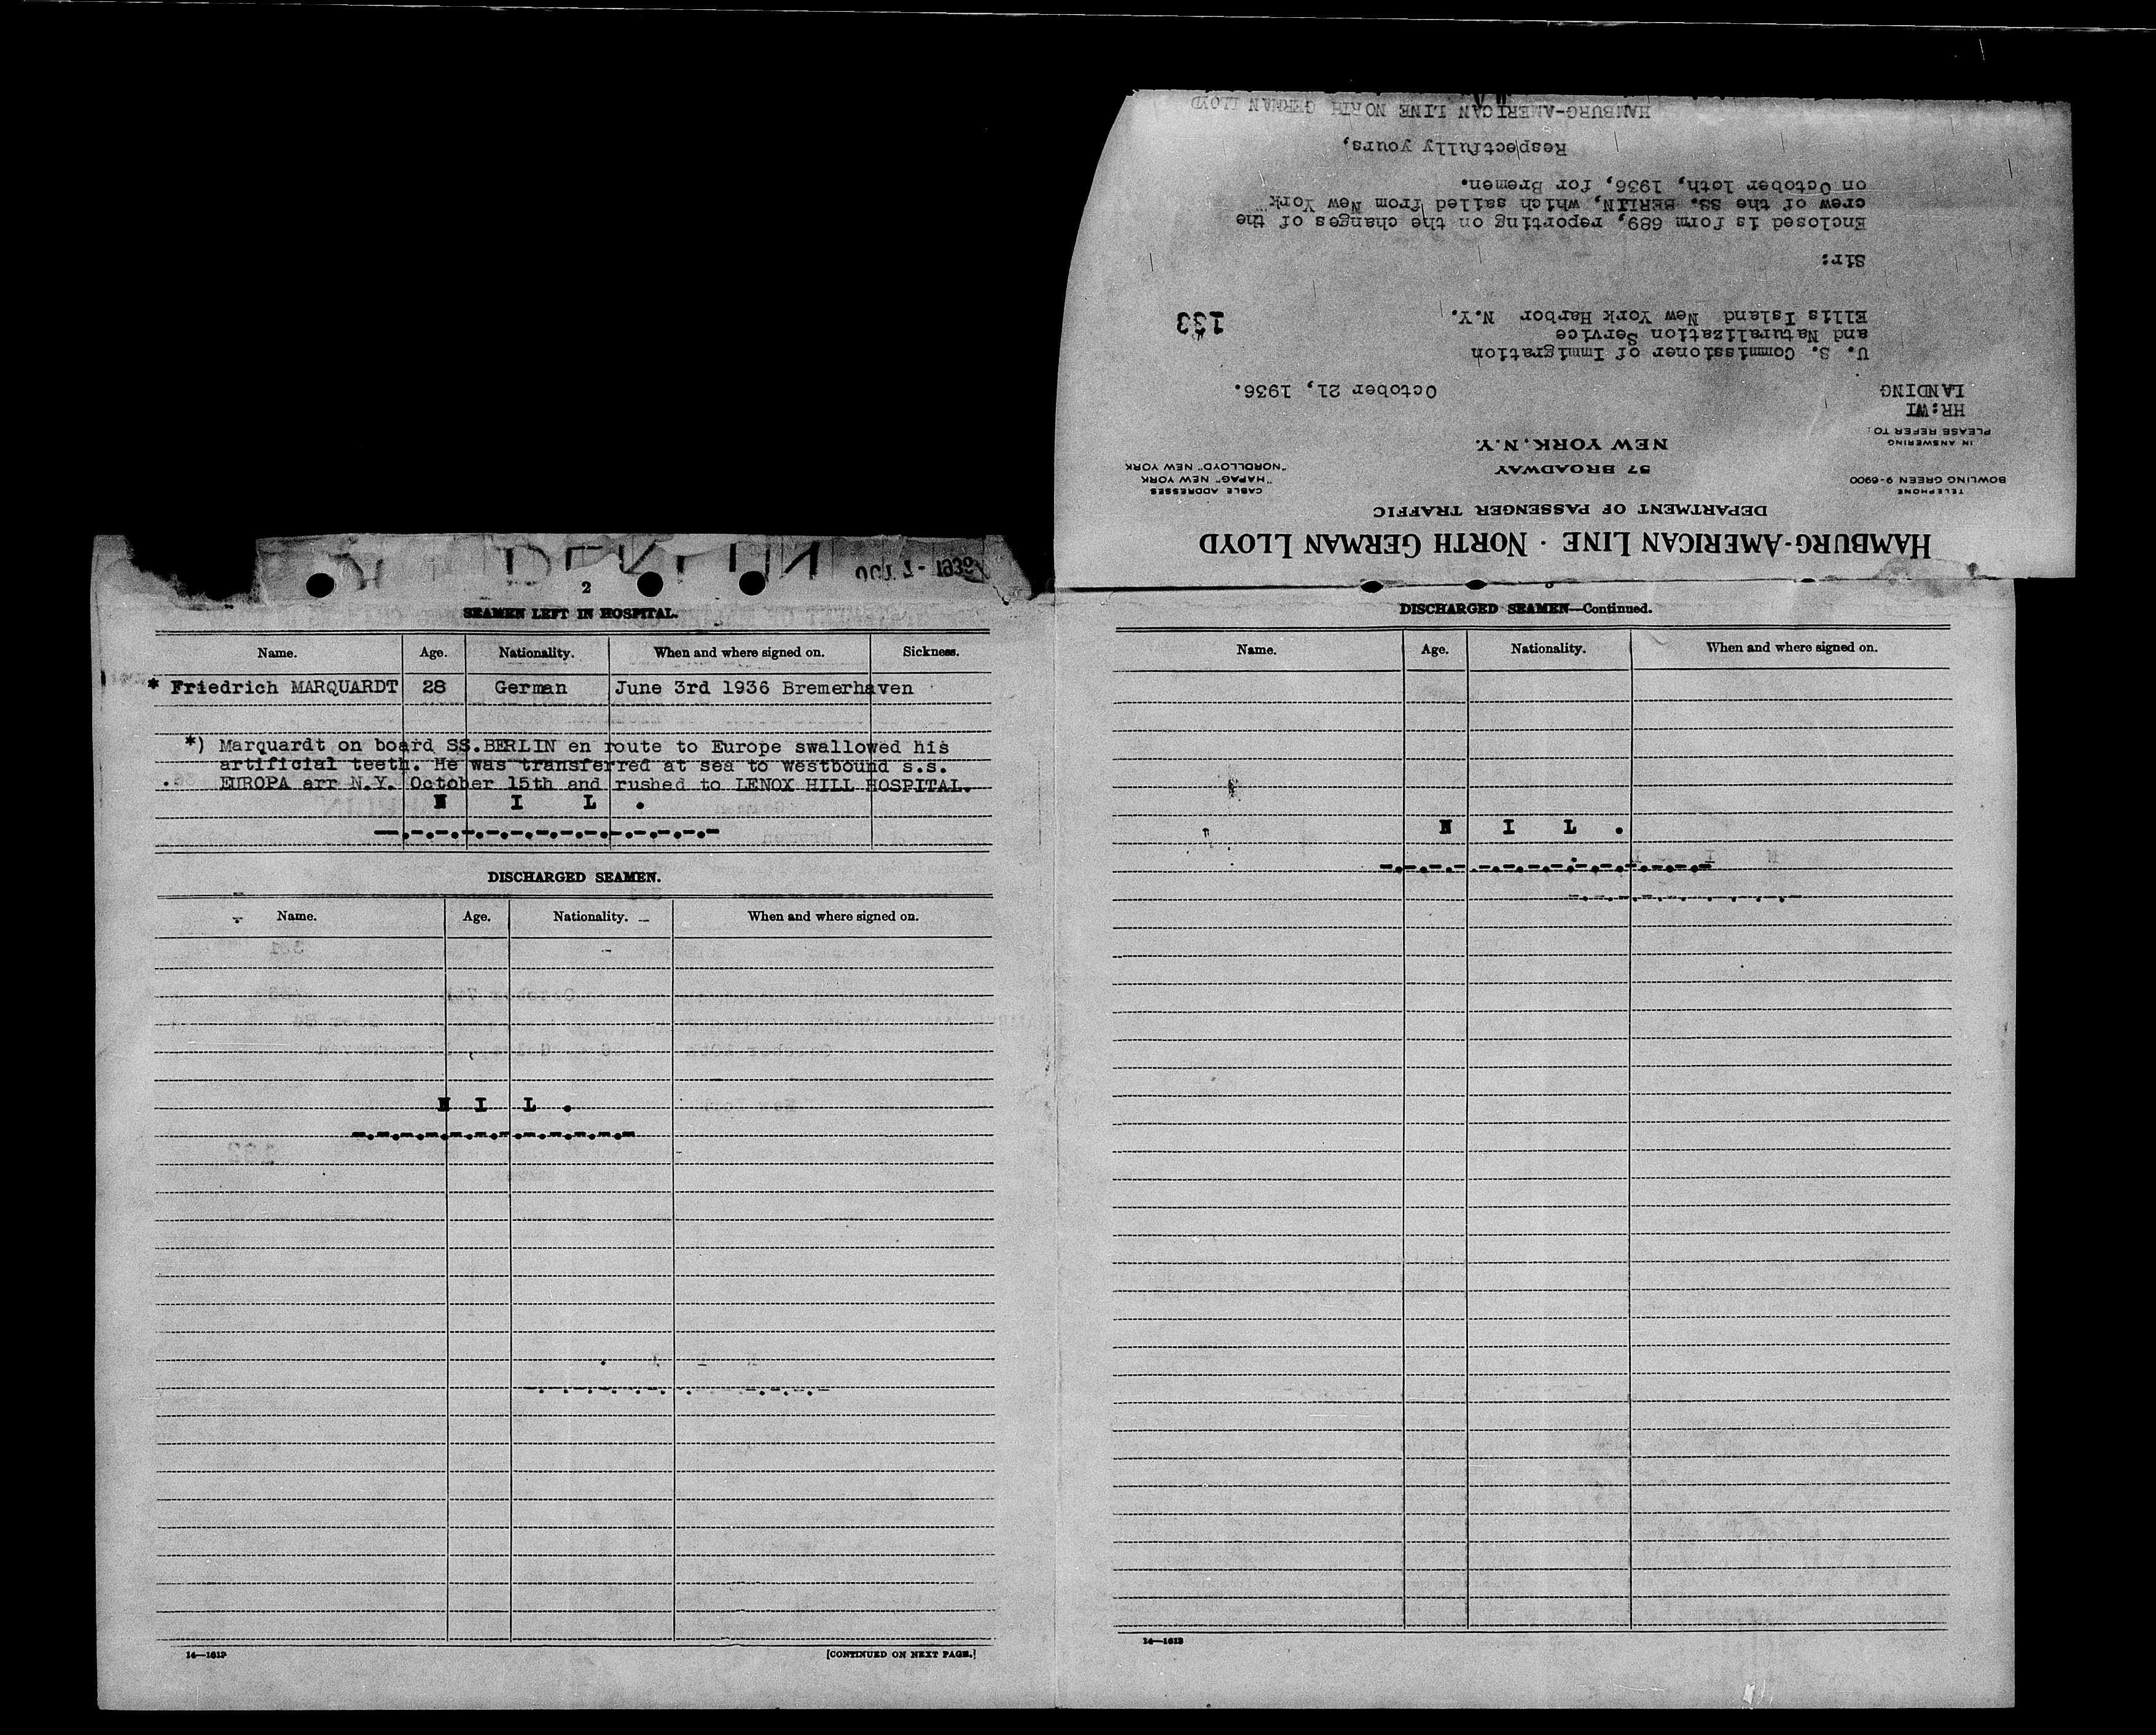 HAMBURG-AMERICAN LINE · NORTH GERMAN LLOYD
DEPARTMENT OF PASSENGER TRAFFIC
57 BROADWAY
NEW YORK, N.Y.
TELEPHONE
BOWLING GREEN 9-6900
CABLE ADDRESSES
"HAPAG" NEW YORK
"NORDLLOYD" NEW YORK
IN ANSWERING
PLEASE REFER TO:
HR:WI
LANDING
October 21, 1936.
U. S. Commissioner of Immigration
and Naturalization Service
Ellis Island New York Harbor N.Y.
133
Sir:
Enclosed is form 689, reporting on the changes of the
crew of the SS. BERLIN, which sailed from New York
on October 10th, 1936, for Bremen.
Respectfully yours,
HAMBURG-AMERICAN LINE NORTH GERMAN LLOYD
BERLIN
OCT 7 - 1936
2
SEAMEN LEFT IN HOSPITAL.
Name. Age. Nationality. When and where signed on. Sickness.
* Friedrich MARQUARDT 28 German June 3rd 1936 Bremerhaven
*) Marquardt on board SS.BERLIN en route to Europe swallowed his
artificial teeth. He was transferred at sea to westbound s.s.
EUROPA arr N.Y. October 15th and rushed to LENOX HILL HOSPITAL.
N I L .
DISCHARGED SEAMEN.
Name. Age. Nationality. When and where signed on.
N I L .
14—1613
[CONTINUED ON NEXT PAGE.]
DISCHARGED SEAMEN—Continued.
Name. Age. Nationality. When and where signed on.
N I L .
14—1613